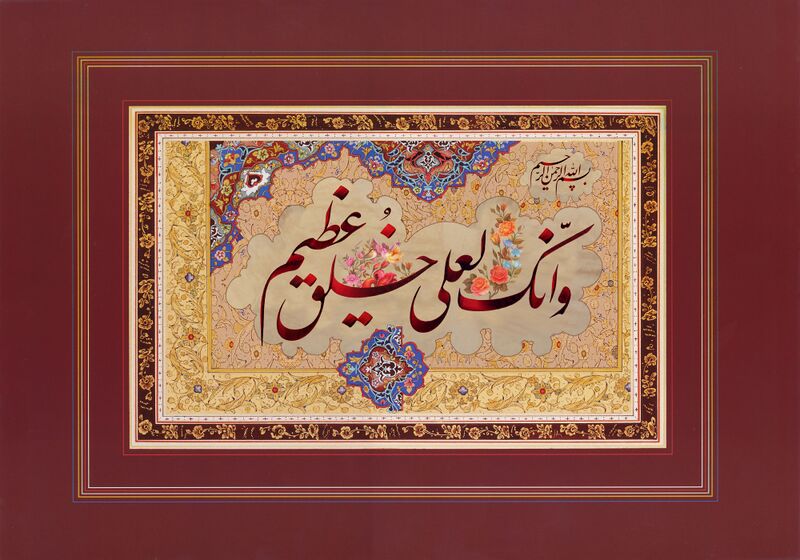 بسم الله الرحمن الرحیم
وانّک لعلی خُلق عظیم